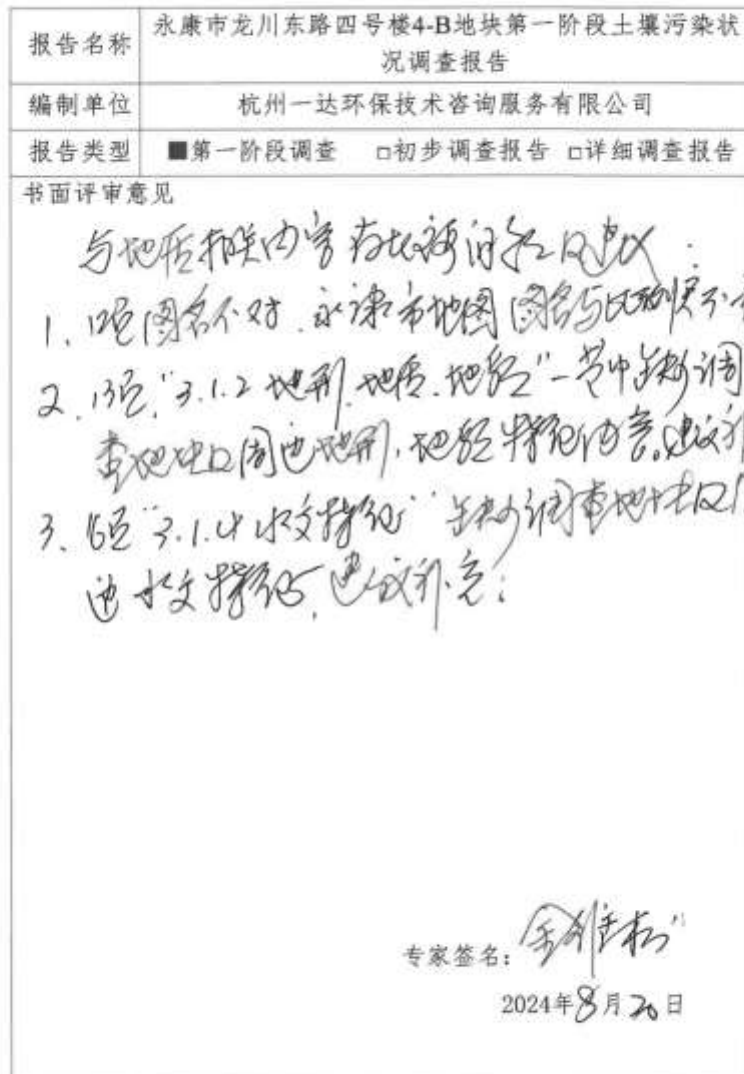 报告名称 永康市龙川东路四号楼4-B地块第一阶段土壤污染状
况调查报告
编制单位 杭州一达环保技术咨询服务有限公司
报告类型 ■第一阶段调查 □初步调查报告 □详细调查报告
书面评审意见
与地质相关内容存在问题和建议:
1、12页图名不对.永康市地图图名与
2、13页,"3.1.2地形、地质、地貌"一节中缺少调
查地块及周边地形,地貌特征内容。建议补
3、16页"3.1.4水文特征"缺少调查地块及
边水文特征,建议补充;
专家签名:
2024年8月20日